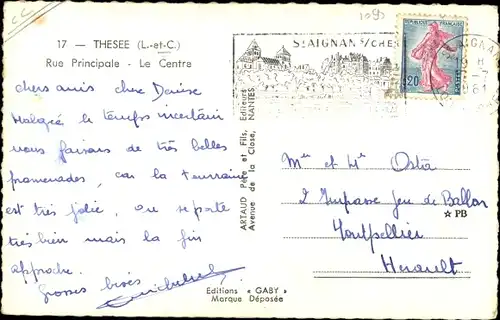 17 - THESEE (L.-et-C.)
Rue Principale - Le Centre
chers amis chère Denise
Malgré le temps incertain
nous faisons de très belles
promenades, car la Touraine
est très jolie, on se porte
très bien mais la fin
approche.
Grosses bises
ARTAUD Père et Fils, Editeurs
Avenue de la Close, NANTES
Editions « GABY »
Marque Déposée
ST AIGNAN S/CHER
REPUBLIQUE FRANCAISE
0,20
POSTES
18 H
1961
Mr et Me Osta
2 Impasse jeu de Ballon
☆ PB
Montpellier
Herault